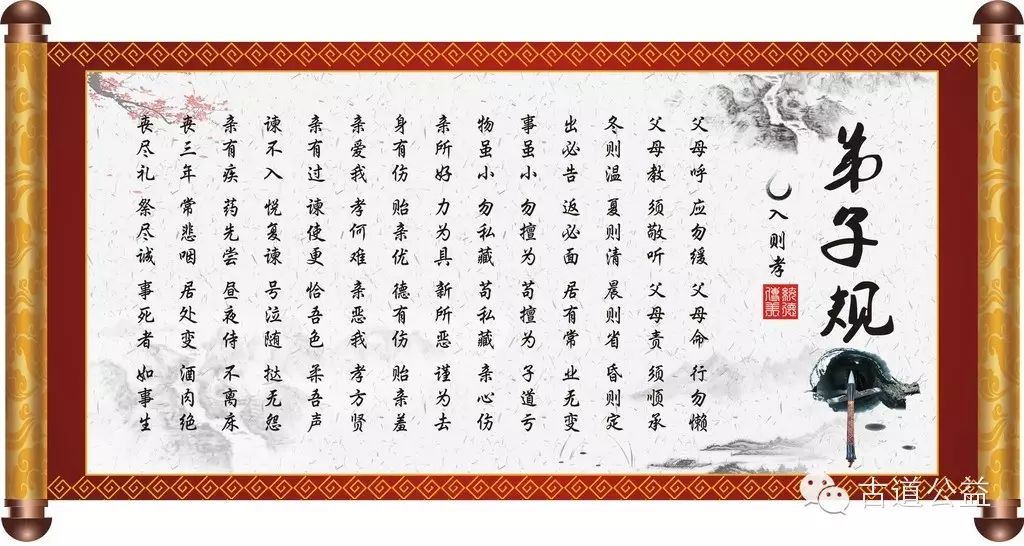 弟子规
入则孝
父母呼 应勿缓 父母命 行勿懒
父母教 须敬听 父母责 须顺承
冬则温 夏则清 晨则省 昏则定
出必告 返必面 居有常 业无变
事虽小 勿擅为 苟擅为 子道亏
物虽小 勿私藏 苟私藏 亲心伤
亲所好 力为具 新所恶 谨为去
身有伤 贻亲优 德有伤 贻亲羞
亲爱我 孝何难 亲恶我 孝方贤
亲有过 谏使更 恰吾色 柔吾声
谏不入 悦复谏 号泣随 挞无怨
亲有疾 药先尝 昼夜侍 不离床
丧三年 常悲咽 居处变 酒肉绝
丧尽礼 祭尽诚 事死者 如事生
古道公益